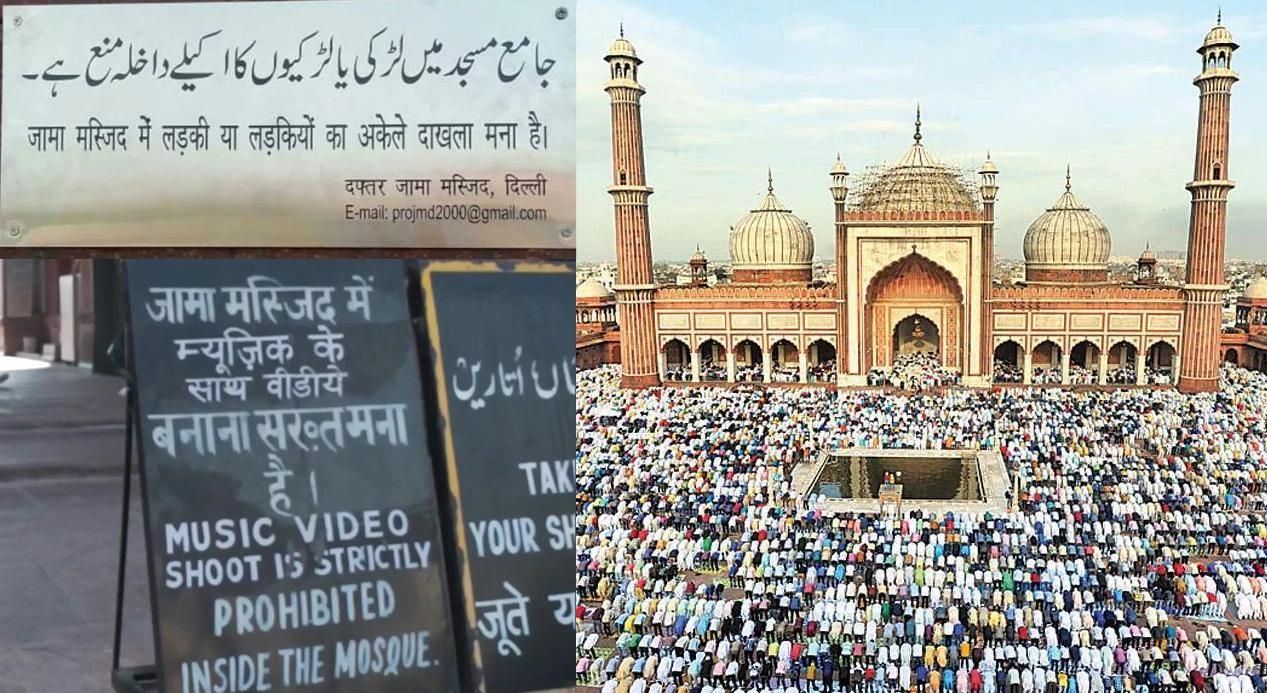 جامع مسجد میں لڑکی یا لڑکیوں کا اکیلے داخلہ منع ہے۔
जामा मस्जिद में लड़की या लड़कियों का अकेले दाखला मना है।
दफ्तर जामा मस्जिद, दिल्ली
E-mail: projmd2000@gmail.com
जामा मस्जिद में
म्यूज़िक के
साथ वीडीये
बनाना सख़्त मना
है।
MUSIC VIDEO
SHOOT IS STRICTLY
PROHIBITED
INSIDE THE MOSQUE.
یہاں اُتاریں
TAK
YOUR SH
जूते य